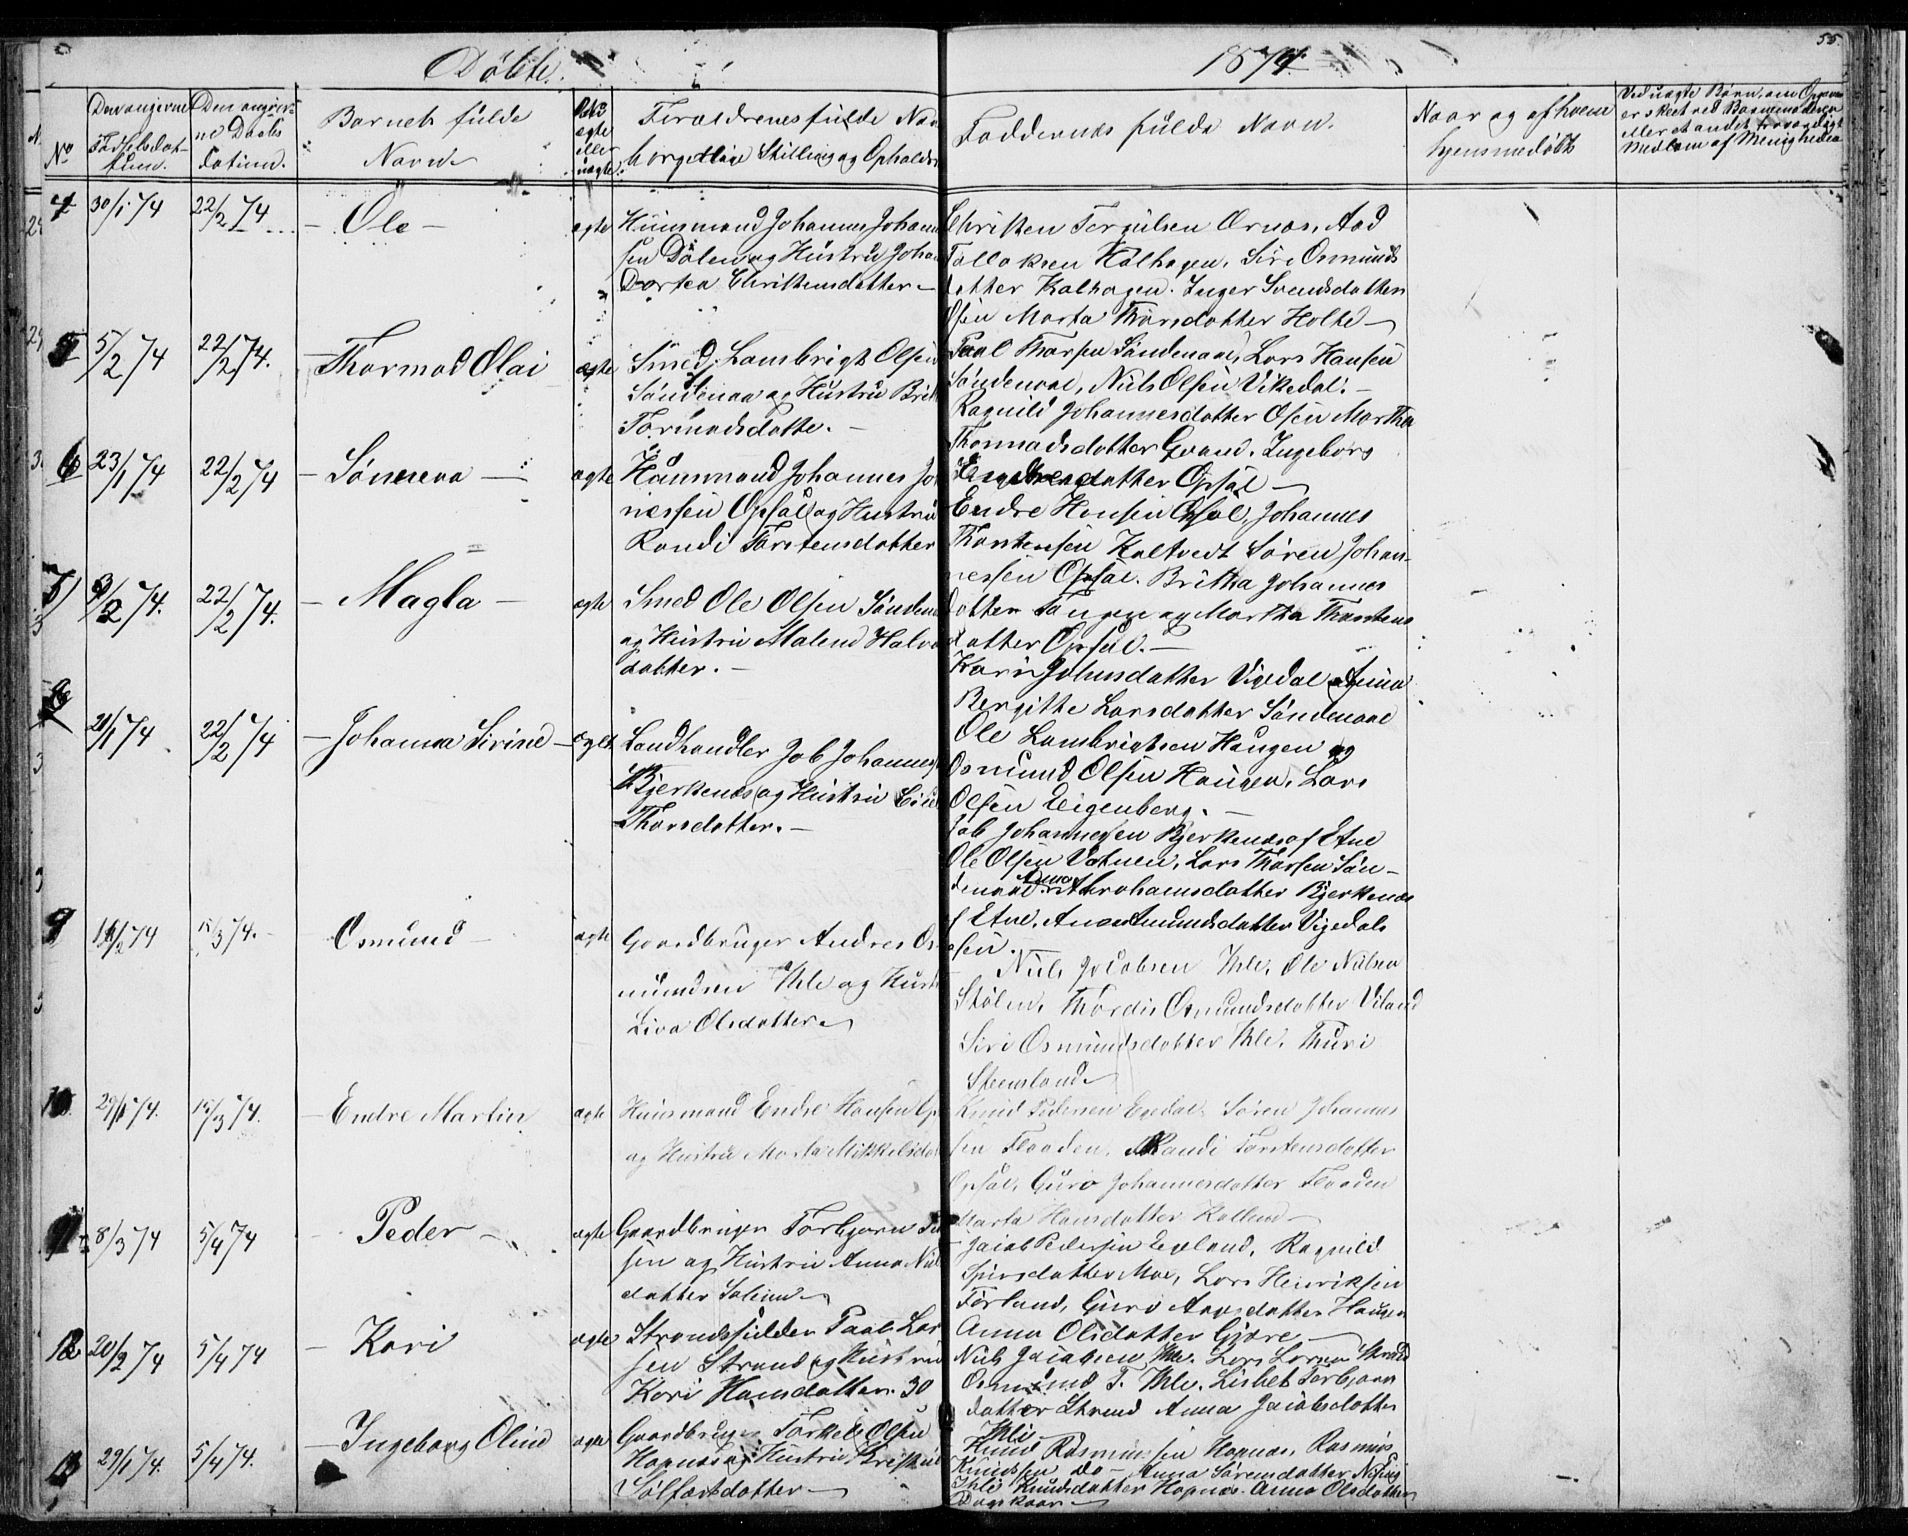 Döbte.
1874
55.
No
Den angivne Fødselsdatum.
Den angivne Daabsdatum.
Barnets fulde Navn
ægte eller uægte.
Forældrenes fulde Nav
borgerlige Stilling og Opholds
Faddernes fulde Navn.
Naar og af hvem hjemmedøbt
Ved uægte Børn, om
er skeet ved
eller et andet
Medlem af Menigheden
4 30/1 74 22/2 74 Ole ægte
Huusmand Johannes Johann
sen Dölen og Hustru Johan
Dortea Christensdatter
Christen Tergilsen Ørnæs, Aad
Tollaksen Kalhagen, Siri Osmunds
datter Kalhagen. Inger Svendsdatter
Osen Marta Thorsdatter Holte
5 5/2 74 22/2 74. Thormod Olai ægte
Smed Lambrigt Olsen
Söndenaa og Hustru Brit
Tormodsdatte.
Paal Thorsen Söndenaa, Lars Hansen
Söndenaa, Niels Olsen Vikedal.
Ragnild Johannesdatter Osen Martha
Thormodsdatter Grand. Ingeborg
datter Opsal
6 23/1 74 22/2 74 Sönneva ægte
Huusmand Johannes Jo
nessen Opsal og Hustru
Randi Torstensdatter
Endre Hansen Opsal, Johannes
Thorstensen Kaltvedt Sören Johan-
nessen Opsal. Britha Johannes
datter Tungen og Martha Thorstens
datter Opsal.
7 3/2 74. 22/2 74. Magla ægte
Smed Ole Olsen Söndena
og Hustru Malene Halvo
datter.
Kari Johnsdatter Vigedal Anna
Bergitte Larsdatter Söndenaa
Ole Lambrigtsen Haugen og
Osmund Olsen Haugen, Lars
Olsen Eigenberg.
8 21/1 74 22/2 74 Johanna Sirine ægte
Landhandler Job Johannes
Bjerkenæs og Hustru
Thorsdatter.
Job Johannesen Bjerkenæs af Etne
Ole Olsen Vatnen, Lars Thorsen Sön-
denaa. Anna Abrahamsdatter Bjerkenæs
af Etne. Amundsdatter Vigedals
osen.
9 /2 74 15/3 74. Osmund ægte
Gaardbruger Andres Os
mundsen Ihle og Hust
Siva Olsdatter
Niels Jacobsen Ihle, Ole Nielsen
Stölen, Thordis Osmundsdatter Viland
Siri Osmundsdatter Ihle. Thuri
Steensland
10 29/1 74. 15/3 74. Endre Martin ægte
Huusmand Endre Hansen Op
og Hustru Marta Mikkelsdat
Knud Pedersen Egedal, Sören Johannes
sen Flaaden, Randi Torstensdatter
Opsal, Guro Johannesdatter Flaaden
Marta Hansdatter
11 8/3 74 5/4 74 Peder ægte
Gaardbruger Torbjorn
sen og Hustru Anna Niel
datter
Jacob Pedersen Egeland, Ragnild
Spirsdatter Moe, Lars Henriksen
Förland, Guro datter Haugen
Anna Olsdatter
12 20/2 74 5/4 74 Kari ægte
Strandsidder Paal Lar
sen Strand og Hustru
Kari Hansdatter. 30
Niels Jacobsen Ihle. Lars Larsen Strand
Osmund T. Ihle. Lisbet Torbjorn
datter Strand Anna Jacobsdatter
Ihle
13 29/1 74. 5/4 74. Ingeborg Oline ægte
Gaardbruger Torkel Olsen
Hapnæs og Hustru
Solfæstdatter
Knud Rasmussen Hapnæs, Rasmus
Knudsen do Anna Sörensdatter
Knudsdatter Hapnæs. Anna Olsdatter